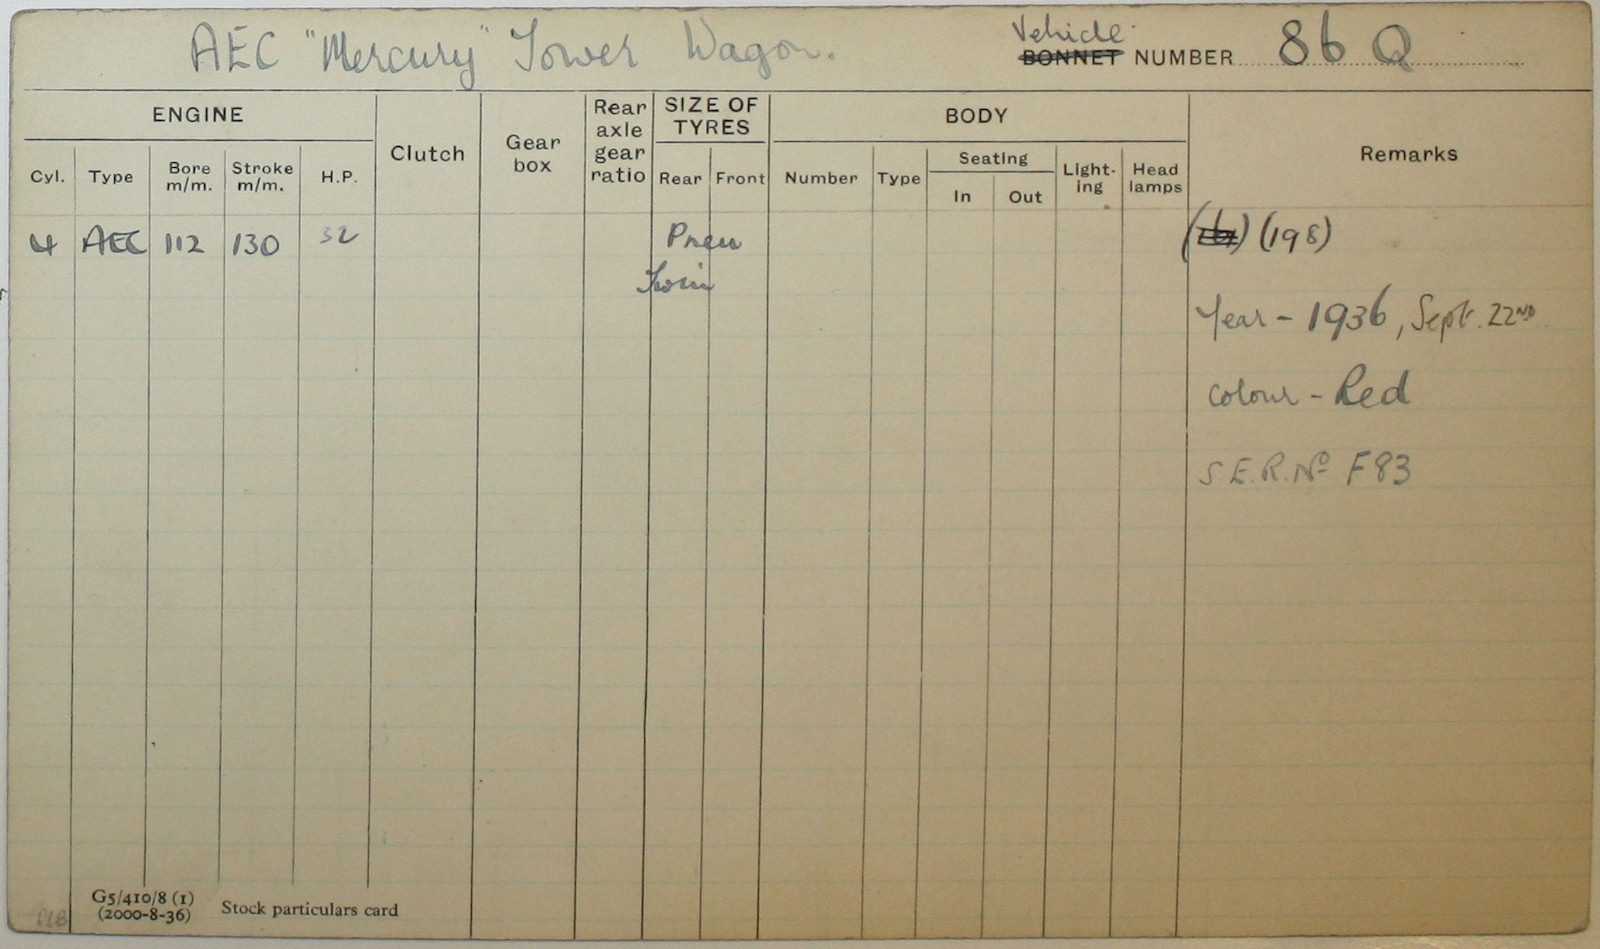 AEC "Mercury" Tower Wagon. Vehicle
BONNET NUMBER 86 Q
ENGINE
Cyl. Type Bore m/m. Stroke m/m. H.P.
Clutch
Gear box
Rear axle gear ratio
SIZE OF TYRES
Rear Front
BODY
Number Type
Seating
In Out
Light-ing
Head lamps
Remarks
4 AEC 112 130 32 Pneu (198)
Twin
Year - 1936, Sept. 22ND
Colour - Red
S.E.R. No F83
G5/410/8 (1)
(2000-8-36) Stock particulars card